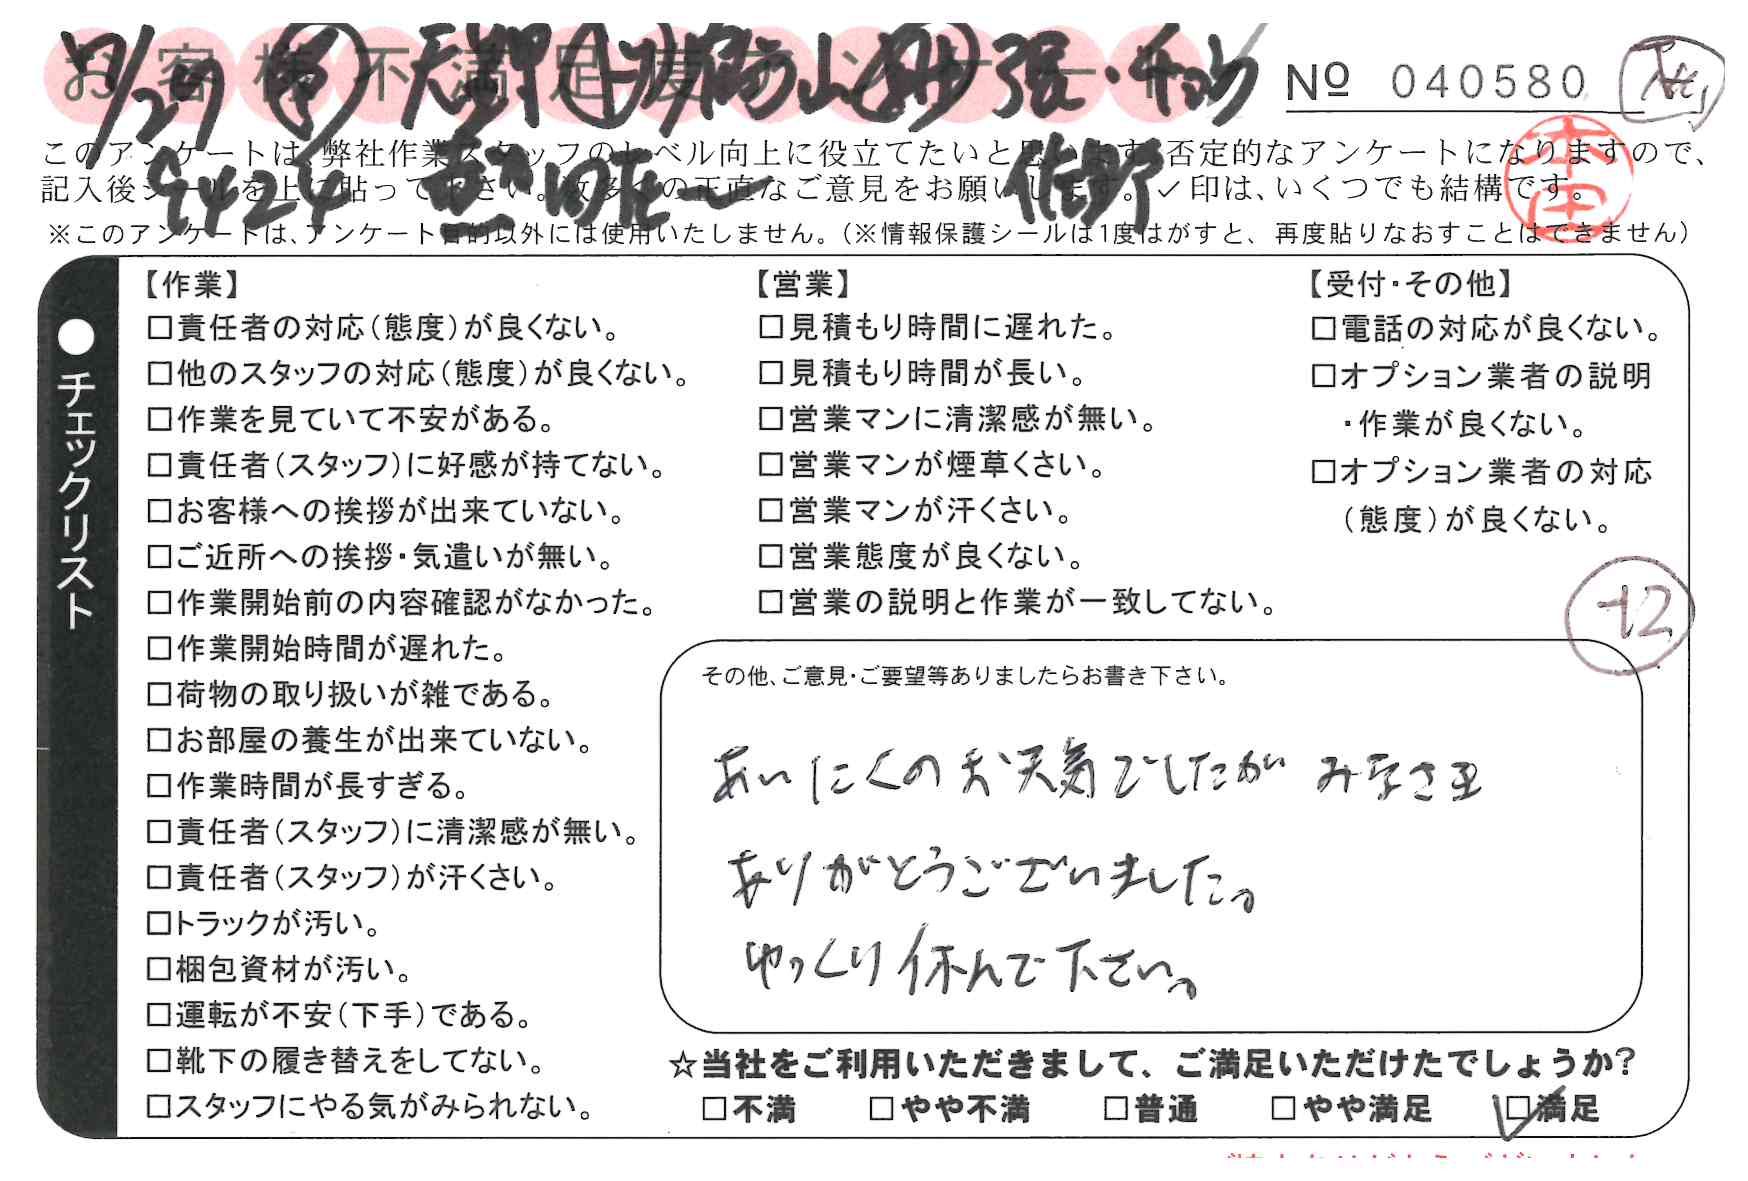 お客様不満足度アンケート
№ 040580
このアンケートは、弊社作業スタッフのレベル向上に役立てたいと思います。否定的なアンケートになりますので、
記入後シールを上に貼って下さい。数多くの正直なご意見をお願いします。✓印は、いくつでも結構です。
※このアンケートは、アンケート目的以外には使用いたしません。（※情報保護シールは1度はがすと、再度貼りなおすことはできません）
●チェックリスト
【作業】
□責任者の対応（態度）が良くない。
□他のスタッフの対応（態度）が良くない。
□作業を見ていて不安がある。
□責任者（スタッフ）に好感が持てない。
□お客様への挨拶が出来ていない。
□ご近所への挨拶・気遣いが無い。
□作業開始前の内容確認がなかった。
□作業開始時間が遅れた。
□荷物の取り扱いが雑である。
□お部屋の養生が出来ていない。
□作業時間が長すぎる。
□責任者（スタッフ）に清潔感が無い。
□責任者（スタッフ）が汗くさい。
□トラックが汚い。
□梱包資材が汚い。
□運転が不安（下手）である。
□靴下の履き替えをしてない。
□スタッフにやる気がみられない。
【営業】
□見積もり時間に遅れた。
□見積もり時間が長い。
□営業マンに清潔感が無い。
□営業マンが煙草くさい。
□営業マンが汗くさい。
□営業態度が良くない。
□営業の説明と作業が一致してない。
【受付・その他】
□電話の対応が良くない。
□オプション業者の説明
・作業が良くない。
□オプション業者の対応
（態度）が良くない。
その他、ご意見・ご要望等ありましたらお書き下さい。
あいにくのお天気でしたが みなさま
ありがとうございました。
ゆっくり休んで下さい。
☆当社をご利用いただきまして、ご満足いただけたでしょうか？
□不満 □やや不満 □普通 □やや満足 ☑満足